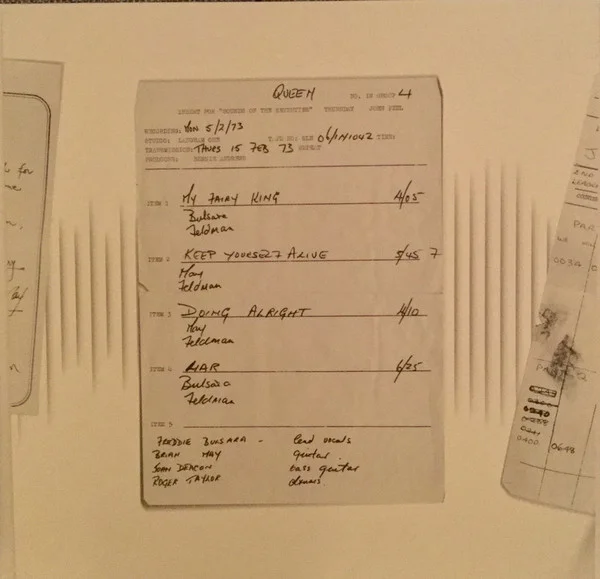 QUEEN
NO. IN GROUP 4
SHEET FOR "SOUNDS OF THE SEVENTIES" THURSDAY JOHN PEEL
RECORDING: MON 5/2/73
STUDIO: LANGHAM ONE TIME:
TRANSMISSION: THURS 15 FEB 73 REPEAT
PRODUCER: BERNIE ANDREWS
ITEM 1 MY FAIRY KING 4/05
Bulsara
Feldman
ITEM 2 KEEP YOURSELF ALIVE 3/45 7
May
Feldman
ITEM 3 DOING ALRIGHT 4/10
May
Feldman
ITEM 4 LIAR 6/25
Bulsara
Feldman
ITEM 5
FREDDIE BULSARA - lead vocals
BRIAN MAY guitar.
JOHN DEACON bass guitar
ROGER TAYLOR drums.
for
J
END
PAR
0400 0648